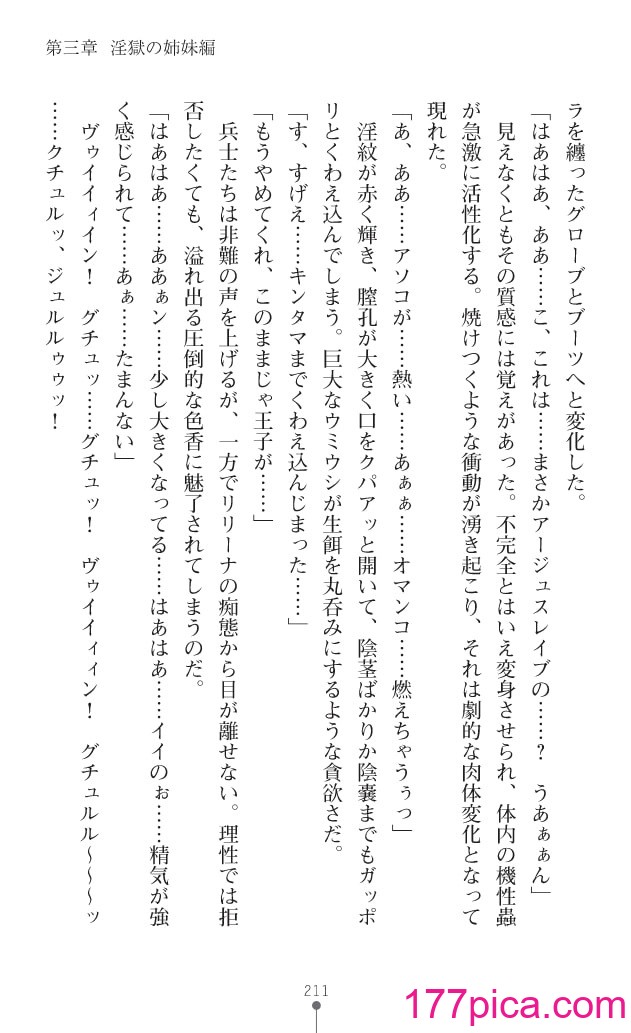 第三章　淫獄の姉妹編
ラを纏ったグローブとブーツへと変化した。
「はあはあ、ああ……こ、これは……まさかアージュスレイブの……？　うあぁぁん」
見えなくともその質感には覚えがあった。不完全とはいえ変身させられ、体内の機性蟲
が急激に活性化する。焼けつくような衝動が湧き起こり、それは劇的な肉体変化となって
現れた。
「あ、ああ……アソコが……熱い……あぁぁ……オマンコ……燃えちゃうぅっ」
淫紋が赤く輝き、膣孔が大きく口をクパアッと開いて、陰茎ばかりか陰嚢までもガッポ
リとくわえ込んでしまう。巨大なウミウシが生餌を丸呑みにするような貪欲さだ。
「す、すげえ……キンタマまでくわえ込んじまった……」
「もうやめてくれ、このままじゃ王子が……」
兵士たちは非難の声を上げるが、一方でリリーナの痴態から目が離せない。理性では拒
否したくても、溢れ出る圧倒的な色香に魅了されてしまうのだ。
「はあはぁ……ああぁン……少し大きくなってる……はあはぁ……イイのぉ……精気が強
く感じられて……あぁ……たまんない」
ヴゥイイィイン！　グチュッ……グチュッ！　ヴゥイイィィン！　グチュルル～～～ッ
……クチュルッ、ジュルルゥゥッ！
211
177pica.com